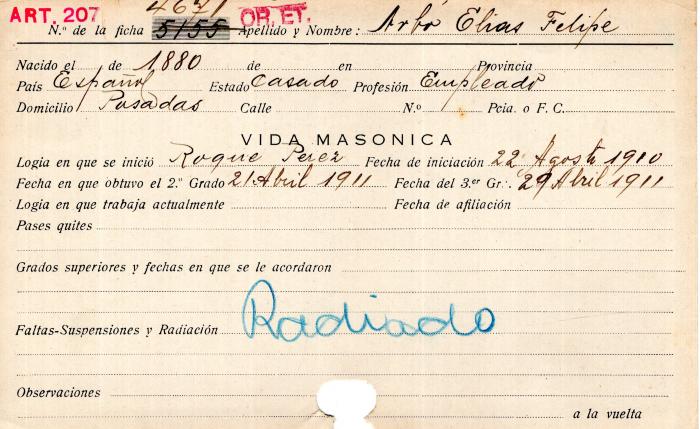 ART. 207 4671 OR. ET.
N.º de la ficha 5155 Apellido y Nombre: Arbó Elias Felipe
Nacido el de 1880 de en Provincia
País Español Estado Casado Profesión Empleado
Domicilio Posadas Calle N.º Pcia. o F. C.
VIDA MASONICA
Logia en que se inició Roque Perez Fecha de iniciación 22 Agosto 1910
Fecha en que obtuvo el 2.º Grado 21 Abril 1911 Fecha del 3.er Gr∴ 29 Abril 1911
Logia en que trabaja actualmente Fecha de afiliación
Pases quites
Grados superiores y fechas en que se le acordaron
Faltas-Suspensiones y Radiación Radiado
Observaciones
a la vuelta